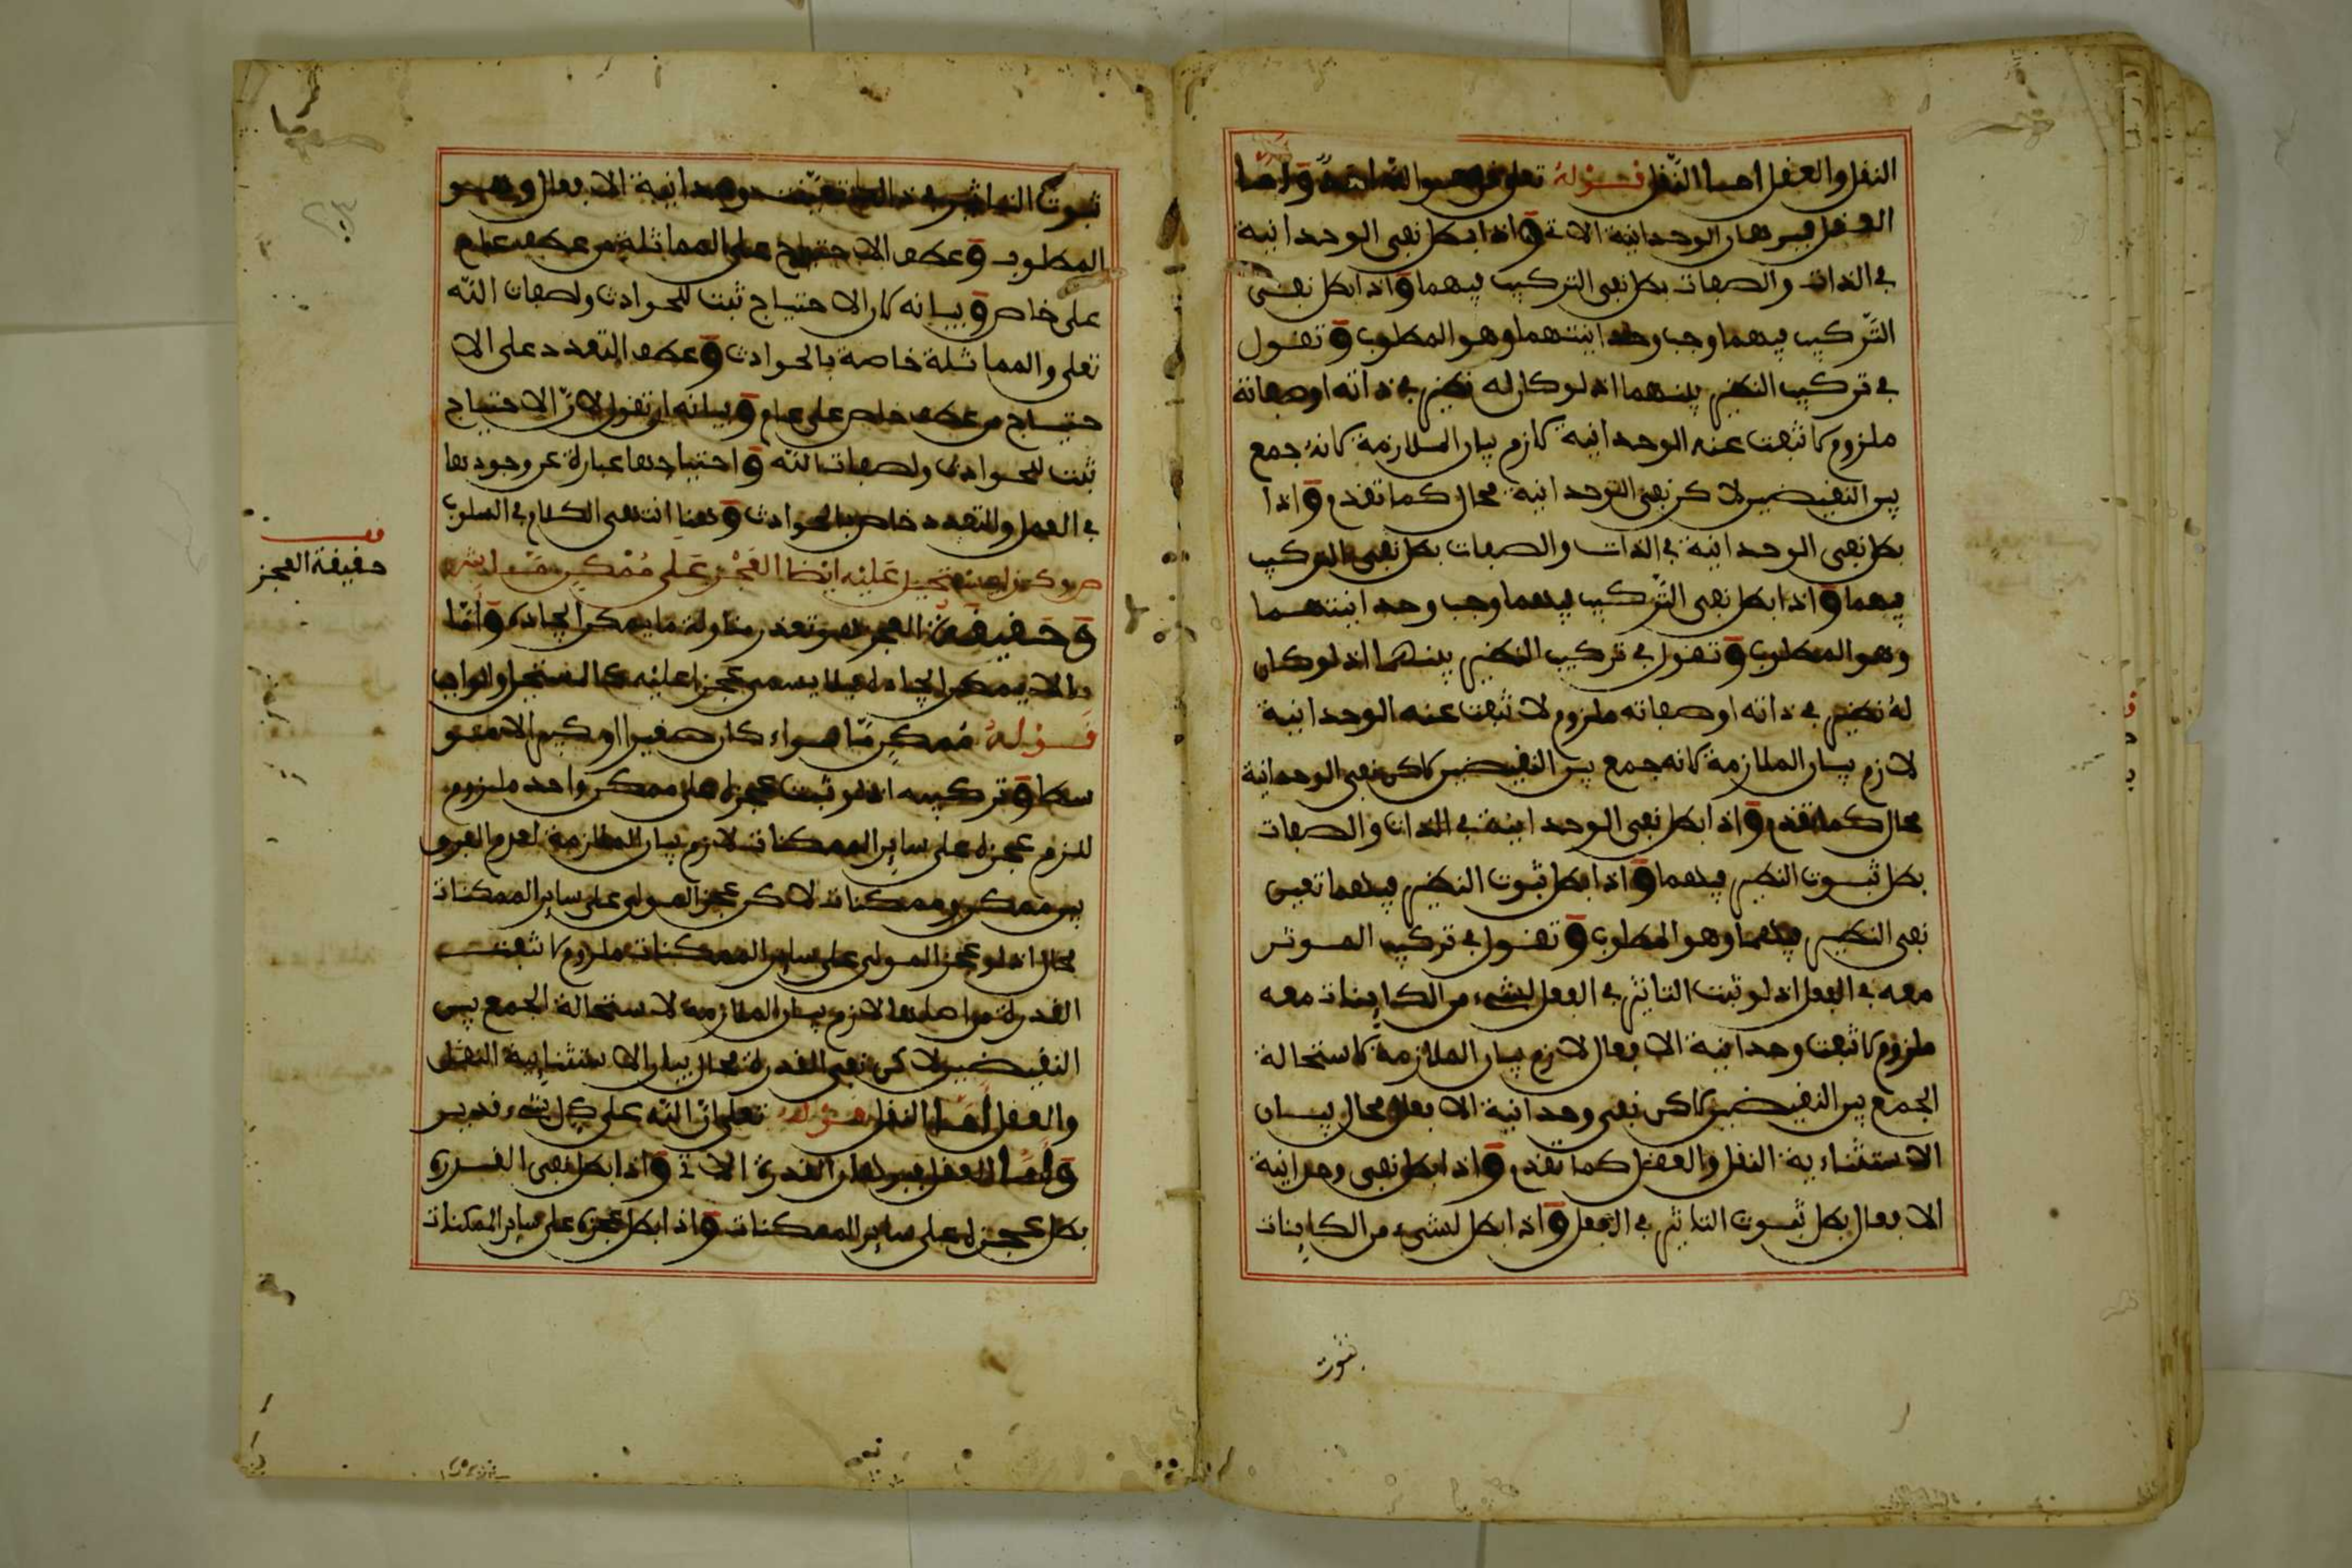 النقل والعقل اما النقل قوله تعلى قل هو الله احد واما
العقل فبرهان الوحدانية الاتي واذا بطل نفي الوحدانية
في الذات والصفات بطل نفي التركيب فيهما واذا بطل نفي
التركيب فيهما وجب وحدانيتهما وهو المطلوب وتقول
في تركيب النظير فيهما اذ لو كان له نظير في ذاته او صفاته
ملزوم لانتفت عنه الوحدانية لازم بيان الملازمة لانه جمع
بين النقيضين لاكن نفي الوحدانية محال كما تقدم واذا
بطل نفي الوحدانية في الذات والصفات بطل نفي التركيب
فيهما واذا بطل نفي التركيب فيهما وجب وحدانيتهما
وهو المطلوب وتقول في تركيب النظير فيهما اذ لو كان
له نظير في ذاته او صفاته ملزوم لانتفت عنه الوحدانية
لازم بيان الملازمة لانه جمع بين النقيضين لاكن نفي الوحدانية
محال كما تقدم واذا بطل نفي الوحدانية في الذات والصفات
بطل ثبوت النظير فيهما واذا بطل ثبوت النظير فيهما تعين
نفي النظير فيهما وهو المطلوب وتقول في تركيب الموثر
معه في الفعل اذ لو ثبت التاثير في الفعل لشيء من الكاينات معه
ملزوم لانتفت وحدانية الافعال لازم بيان الملازمة لاستحالة
الجمع بين النقيضين لاكن نفي وحدانية الافعال محال بيان
الاستثناءية النقل والعقل كما تقدم واذا بطل نفي وحدانية
الافعال بطل ثبوت التاثير في الفعل واذا بطل لشيء من الكاينات
ثبوت
ثبوت التاثير وحدانية الافعال وهو
المطلوب وعطف الاحتياج على المماثلة من عطف عام
على خاص وبيانه كان الاحتياج ثبت للحوادث ولصفات الله
تعلى والمماثلة خاصة بالحوادث وعطف التعدد على الا
حتياج من عطف خاص على عام وبيانه ان تقول لان الاحتياج
ثبت للحوادث ولصفات الله واحتياجها عبارة عن وجودها
في المحل والتعدد خاص بالحوادث وهنا انتهى الكلام في السلوب
ص وكذا يستحيل عليه ايضا العجز على ممكن ما
وحقيقة العجز هو تعذر مناولة ما يمكن ايجاده واما
ما لا يمكن ايجاده فلا يسمى عجزا عليه كالمستحيل والواجب
قوله ممكن ما سواء كان صغيرا او كبيرا او متو
سطا وتركيبه اذ لو ثبت عجزه على ممكن واحد ملزوم
للزم عجزه على ساير الممكنات لازم بيان الملازمة لعدم الفرق
بين ممكن وممكنات لاكن عجز المولى على ساير الممكنات
محال اذ لو عجز المولى على ساير الممكنات ملزوم لانتفت
القدرة من اصلها لازم بيان الملازمة لاستحالة الجمع بين
النقيضين لاكن نفي القدرة محال بيان الاستثناءية النقل
والعقل اما النقل قوله تعلى ان الله على كل شيء قدير
واما العقل فبرهان القدرة الاتي واذا بطل نفي القدرة
بطل عجزه على ساير الممكنات واذا بطل عجزه على ساير الممكنات
قف
حقيقة العجز